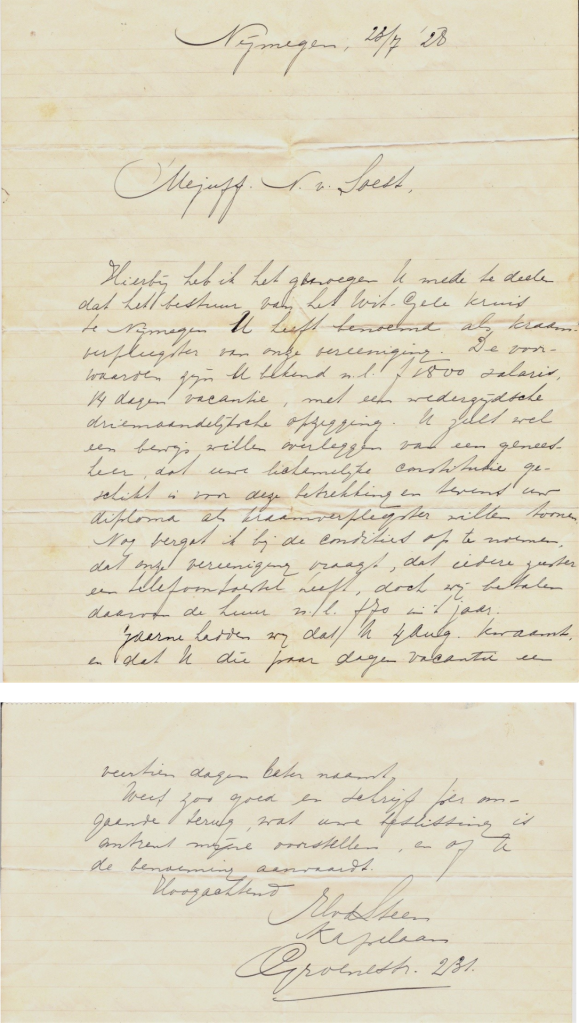 Nijmegen, 23/7 '28
Mejuff. N. v. Soest,
Hierbij heb ik het genoegen U mede te deelen
dat het bestuur van het Wit-Gele Kruis
te Nijmegen U heeft benoemd als kraam-
verpleegster van onze vereeniging. De voor-
waarden zijn U bekend n.l. f 1800 salaris,
14 dagen vacantie, met een wederzijdsche
driemaandelijksche opzegging. U zult wel
een bewijs willen overleggen van een genees-
heer, dat uwe lichamelijke constitutie ge-
schikt is voor deze betrekking en tevens uw
diploma als kraamverpleegster willen toonen.
Nog vergat ik bij de condities op te noemen,
dat onze vereeniging vraagt, dat iedere zuster
een telefoontoestel heeft, doch wij betalen
daarvan de huur n.l. f70 in 't jaar.
Gaarne hadden wij dat U 4 Aug. kwaamt,
en dat U die paar dagen vacantie een
veertien dagen later naamt.
Wees zoo goed en schrijf per om-
gaande terug, wat uwe beslissing is
omtrent mijne voorstellen, en of U
de benoeming aanvaardt.
Hoogachtend
Steen
Kapelaan
Groenestr. 231.